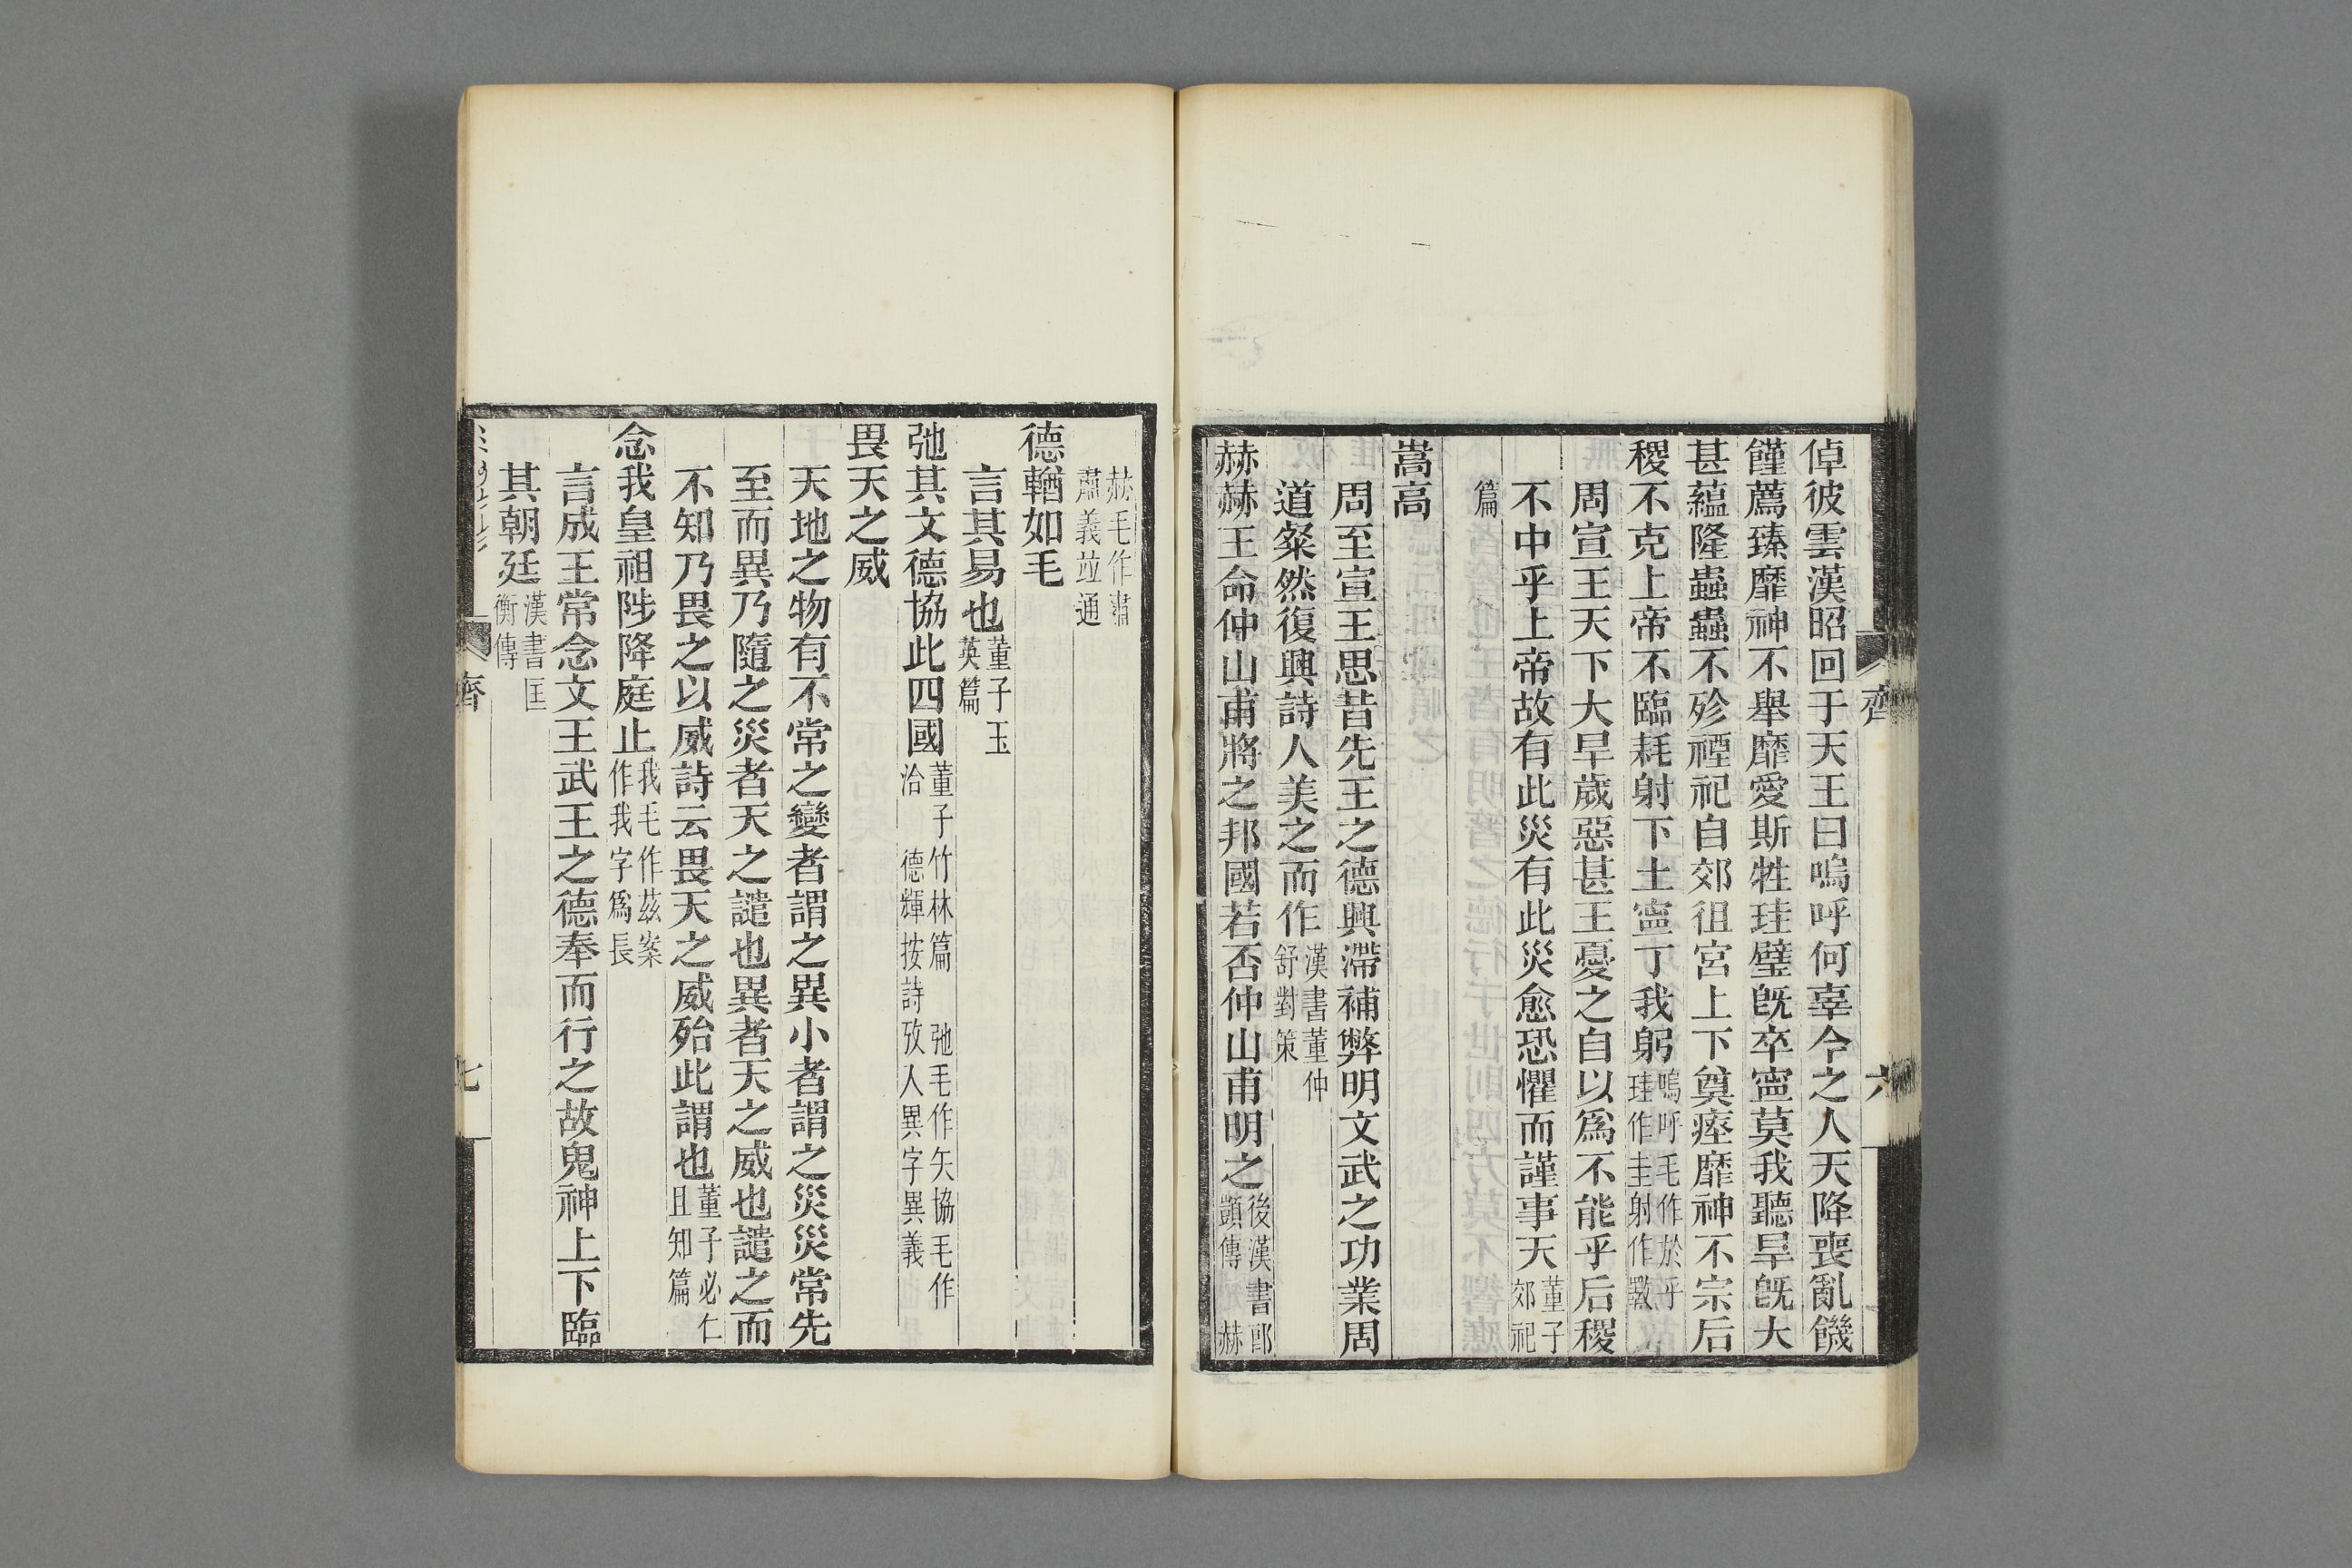 倬彼雲漢昭回于天王曰嗚呼何辜今之人天降喪亂饑
饉薦臻靡神不舉靡愛斯牲珪璧旣卒寧莫我聽旱旣大
甚蘊隆蟲蟲不殄禋祀自郊徂宮上下奠瘞靡神不宗后
稷不克上帝不臨耗射下土寧丁我躬嗚呼毛作於乎
珪作圭射作斁
周宣王天下大旱歲惡甚王憂之自以爲不能乎后稷
不中乎上帝故有此災有此災愈恐懼而謹事天董子
郊祀
篇
嵩高
周至宣王思昔先王之德興滯補弊明文武之功業周
道粲然復興詩人美之而作漢書董仲
舒對策
赫赫王命仲山甫將之邦國若否仲山甫明之後漢書郎
顗傳 赫
齊
六
赫毛作肅
肅義竝通
德輶如毛
言其易也董子玉
英篇
弛其文德協此四國董子竹林篇 弛毛作矢協毛作
洽 德輝按詩攷人異字異義
畏天之威
天地之物有不常之變者謂之異小者謂之災災常先
至而異乃隨之災者天之譴也異者天之威也譴之而
不知乃畏之以威詩云畏天之威殆此謂也董子必仁
且知篇
念我皇祖陟降庭止我毛作茲案
作我字爲長
言成王常念文王武王之德奉而行之故鬼神上下臨
其朝廷漢書匡
衡傳
齊
七